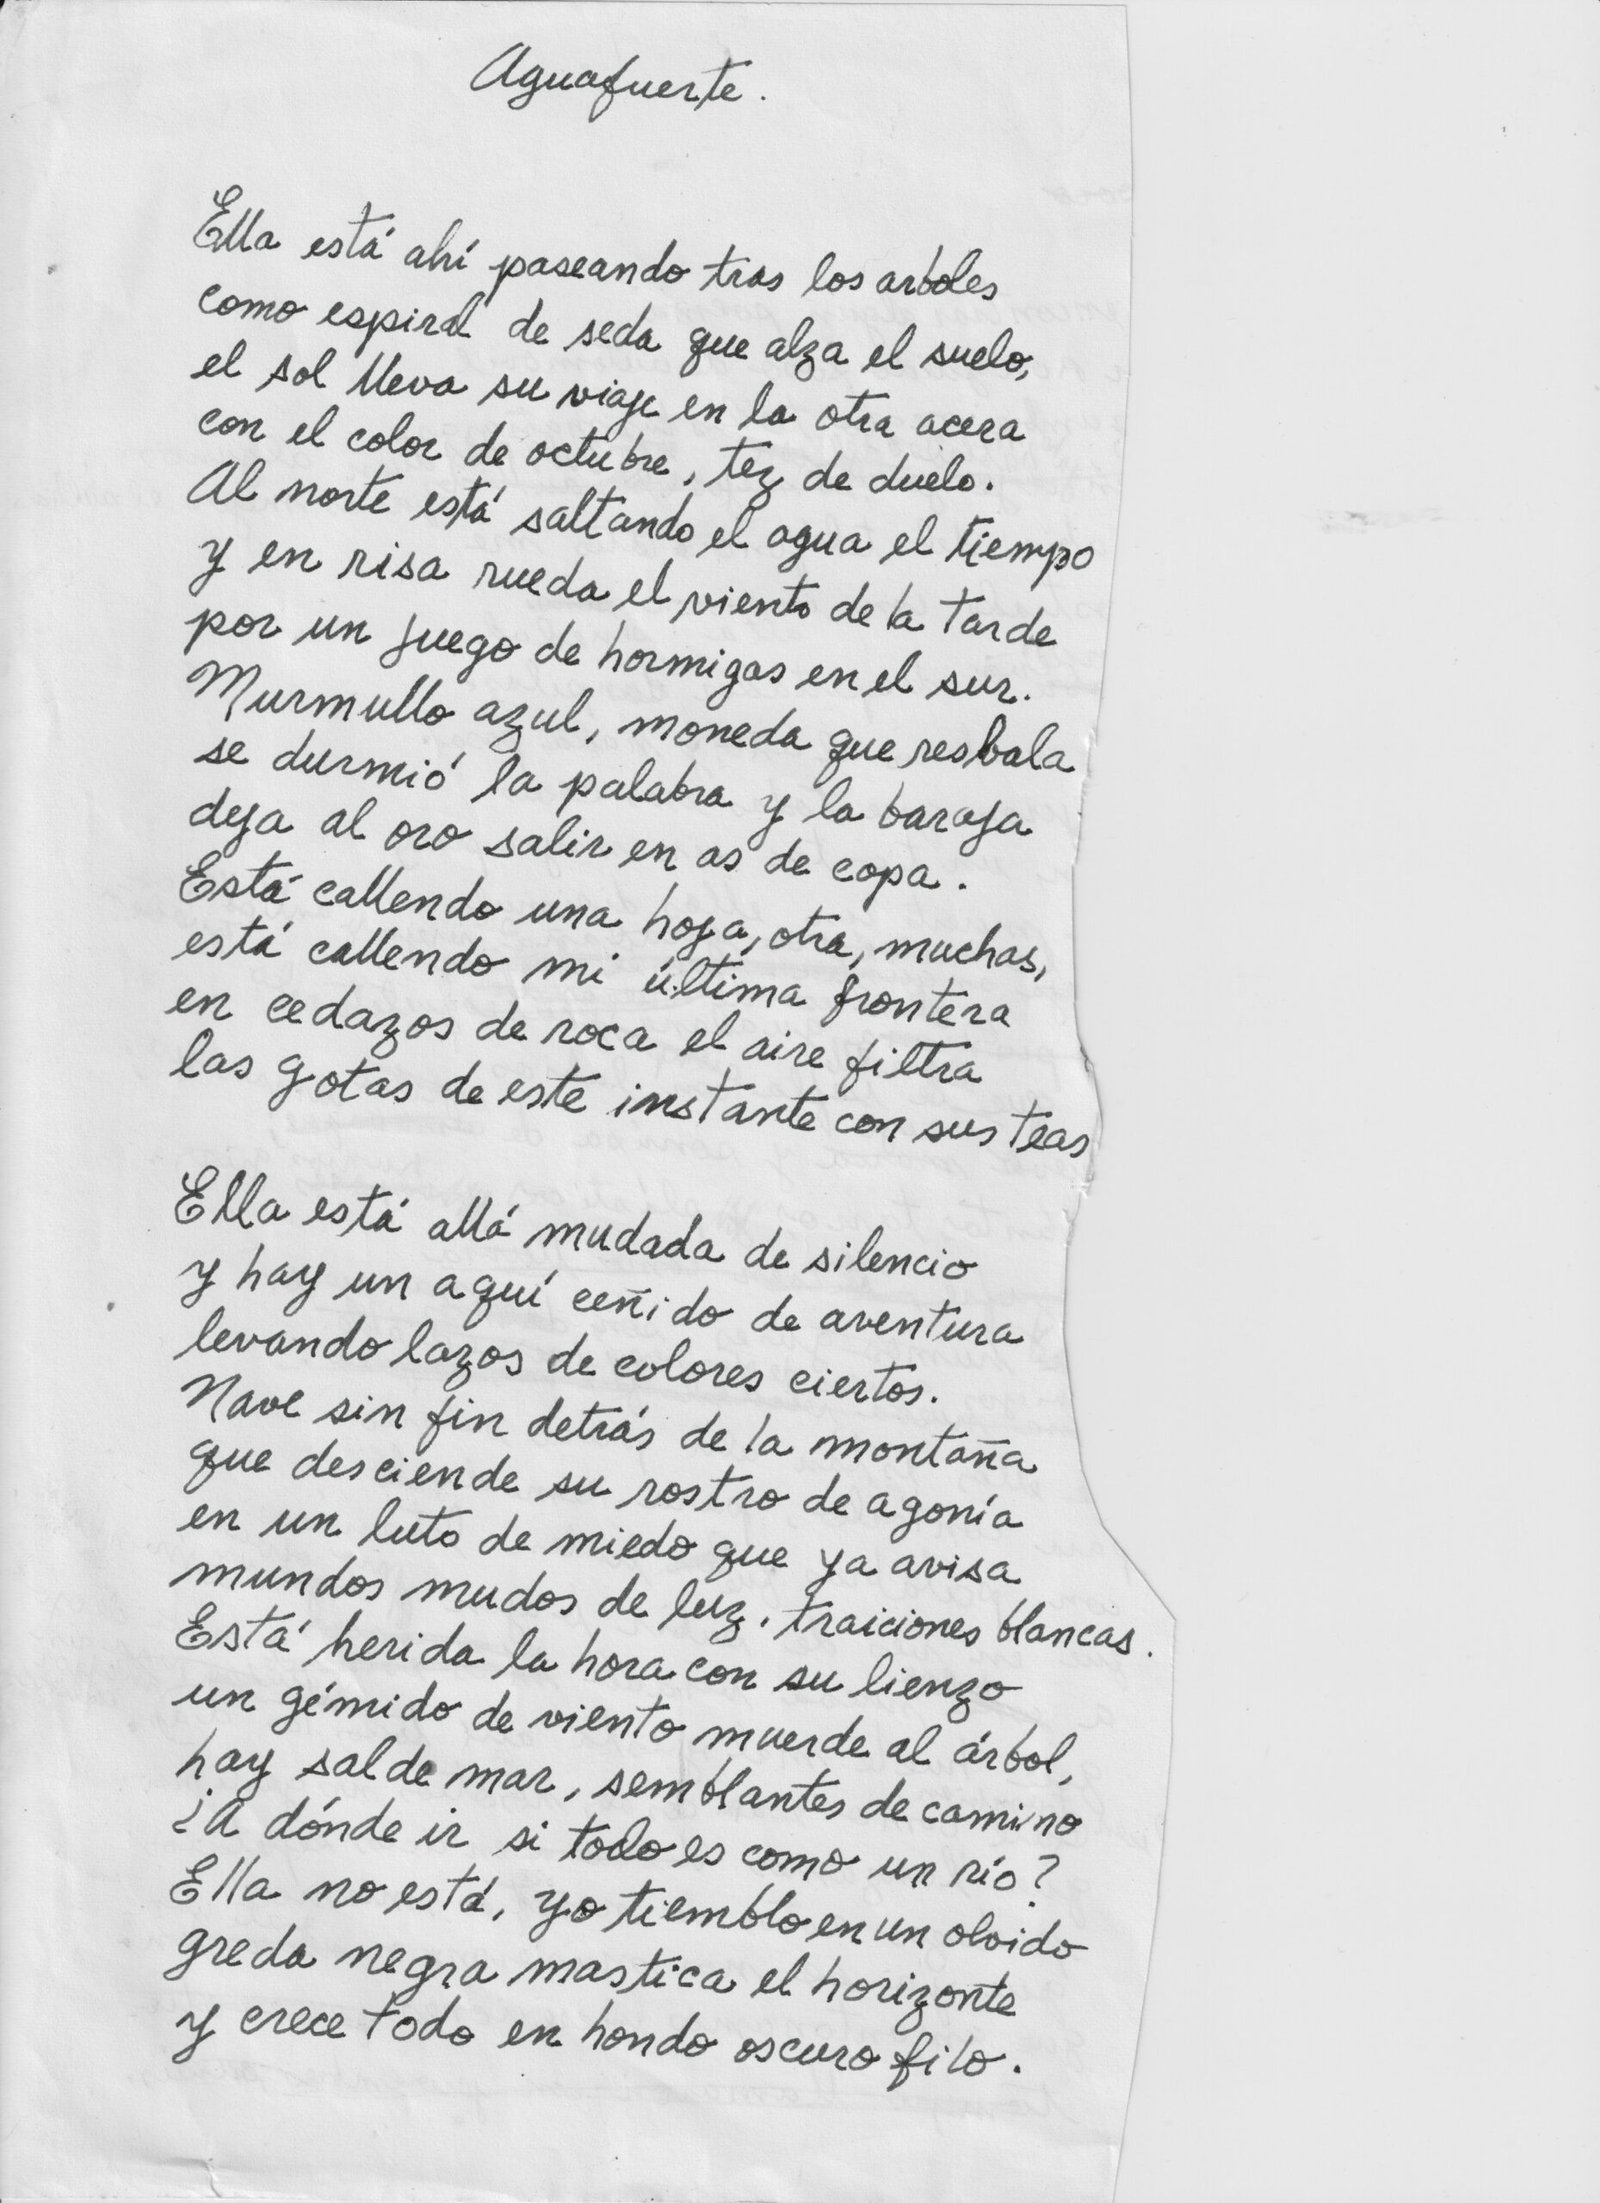 Aguafuerte.
Ella está ahí paseando tras los arboles
como espiral de seda que alza el suelo,
el sol lleva su viaje en la otra acera
con el color de octubre, tez de duelo.
Al norte está saltando el agua el tiempo
y en risa rueda el viento de la tarde
por un juego de hormigas en el sur.
Murmullo azul, moneda que resbala
se durmió la palabra y la baraja
deja al oro salir en as de copa.
Está callendo una hoja, otra, muchas,
está callendo mi última frontera
en cedazos de roca el aire filtra
las gotas de este instante con sus teas
Ella está allá mudada de silencio
y hay un aquí ceñido de aventura
levando lazos de colores ciertos.
Nave sin fin detrás de la montaña
que desciende su rostro de agonía
en un luto de miedo que ya avisa
mundos mudos de luz. traiciones blancas.
Está herida la hora con su lienzo
un gémido de viento muerde al árbol,
hay sal de mar, semblantes de camino
¿A dónde ir si todo es como un río?
Ella no está, yo tiemblo en un olvido
greda negra mastica el horizonte
y crece todo en hondo oscuro filo.